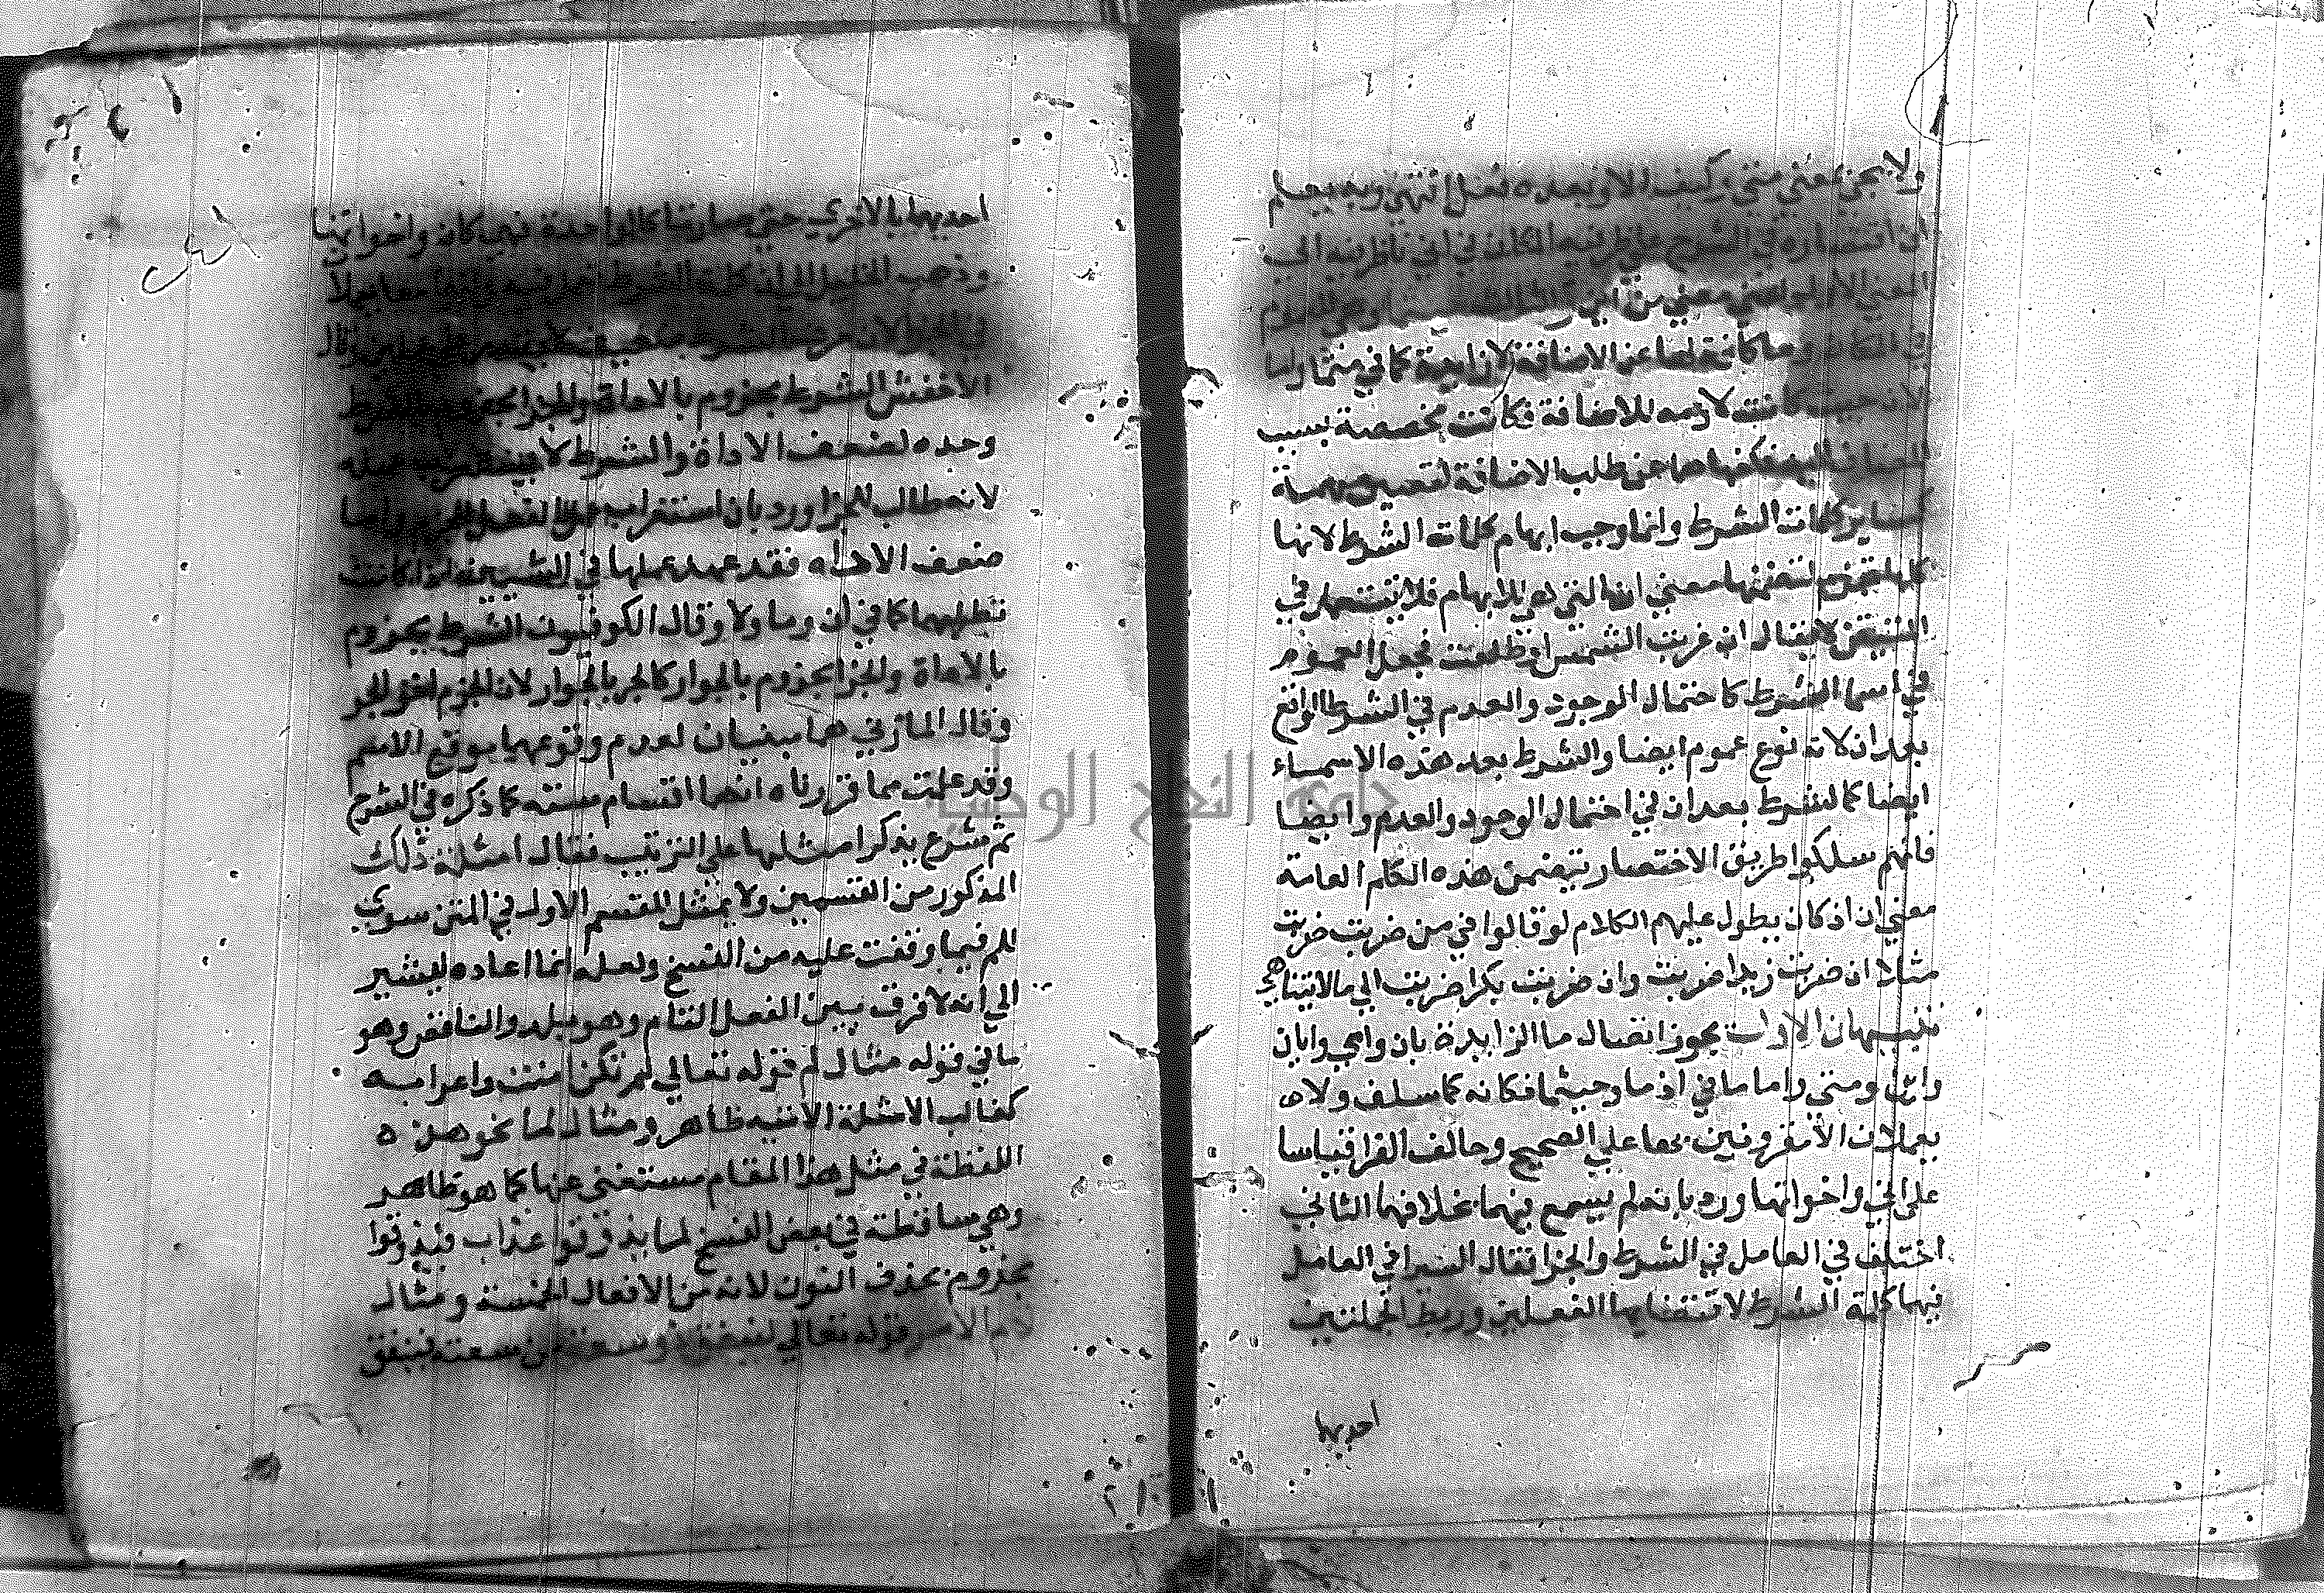 ولا يجيء بمعني متي وكيف الا وبعده فعل انتهي وبه يعلم
ان اقتصاره في الشرح علي ظرفيه المكان في اني ناظر فيه الي
المعني الاول
وما كافة لها عن الاضافة لا زايدة كما في متما وانما
لان حيث كانت لازمه للاضافة فكانت مخصصة بسبب
المضاف اليه فكفتها ما عن طلب الاضافة لتصير مبهمة
كساير كلمات الشرط وانما وجب ابهام كلمات الشرط لانها
كلها تجزم لتضمنها معني ان التي هي للابهام فلا تستعمل في
المتيقن لا يقال ان غربت الشمس او طلعت فجعل العموم
في اسما الشرط كاحتمال الوجود والعدم في الشرط الواقع
بعد ان لانه نوع عموم ايضا والشرط بعد هذه الاسماء
ايضا كالشرط بعد ان في احتمال الوجود والعدم وايضا
فانهم سلكوا طريق الاختصار بتضمن هذه الكلم العامة
معني ان اذ كان يطول عليهم الكلام لو قالوا في من ضربت ضربت
مثلا ان ضربت زيدا ضربت وان ضربت بكرا ضربت الي مالا يتناهي
تنبيهان الاول يجوز اتصال ما الزايدة بان واي وايان
واين ومتي واما ما في اذما وحيثما فكافه كما سلف ولاه
يعملان الا مقرونين بها علي الصحيح وخالف الفرا قياسا
علي اين واخواتها ورد بانه لم يسمع فيهما بخلافها الثاني
اختلف في العامل في الشرط والجزا فقال السيرافي العامل
فيهما كلمة الشرط لاقتضايها الفعلين وربط الجملتين
احديهما
احديهما بالاخري حتي صارتا كالواحدة فهي كان واخواتها
وذهب الخليل الي ان كلمة الشرط
الاخفش الشرط مجزوم بالاداة والجزا مجزوم بالشرط
وحده لضعف الاداة والشرط لا يستغرب عمله
لانه طالب للجزا ورد بان استغراب عمل الفعل الجزم واما
ضعف الاداه فقد عهد عملها في الشيين اذا كانت
تطلبهما كما في ان وما ولا وقال الكوفيون الشرط مجزوم
بالاداة والجزا مجزوم بالجوار كالجر بالجوار لان الجزم اخو الجر
وقال المازني هما مبنيان لعدم وقوعهما موقع الاسم
وقد علمت مما قررناه انهما اقسام سته كما ذكره في الشرح
ثم شرع يذكر امثلتها علي الترتيب فقال امثلة ذلك
المذكور من القسمين ولا يمثل للقسم الاول في المتن سوي
للم فيما وقفت عليه من النسخ ولعله انما اعاده ليشير
الي انه لا فرق بين الفعل التام وهو يلد والناقص وهو
ما في قوله مثال لم قوله تعالي لم تكن امنت واعرابه
كغالب الامثلة الاتيه ظاهر ومثال لما نحو هذه
اللفظة في مثل هذا المقام مستغني عنها كما هو ظاهر
وهي ساقطة في بعض النسخ لما يذوقوا عذاب فيذوقوا
مجزوم بحذف النون لانه من الافعال الخمسة ومثال
لام الامر قوله تعالي لينفق ذو سعة من سعته فينفق
جامعة النجاح الوطنية